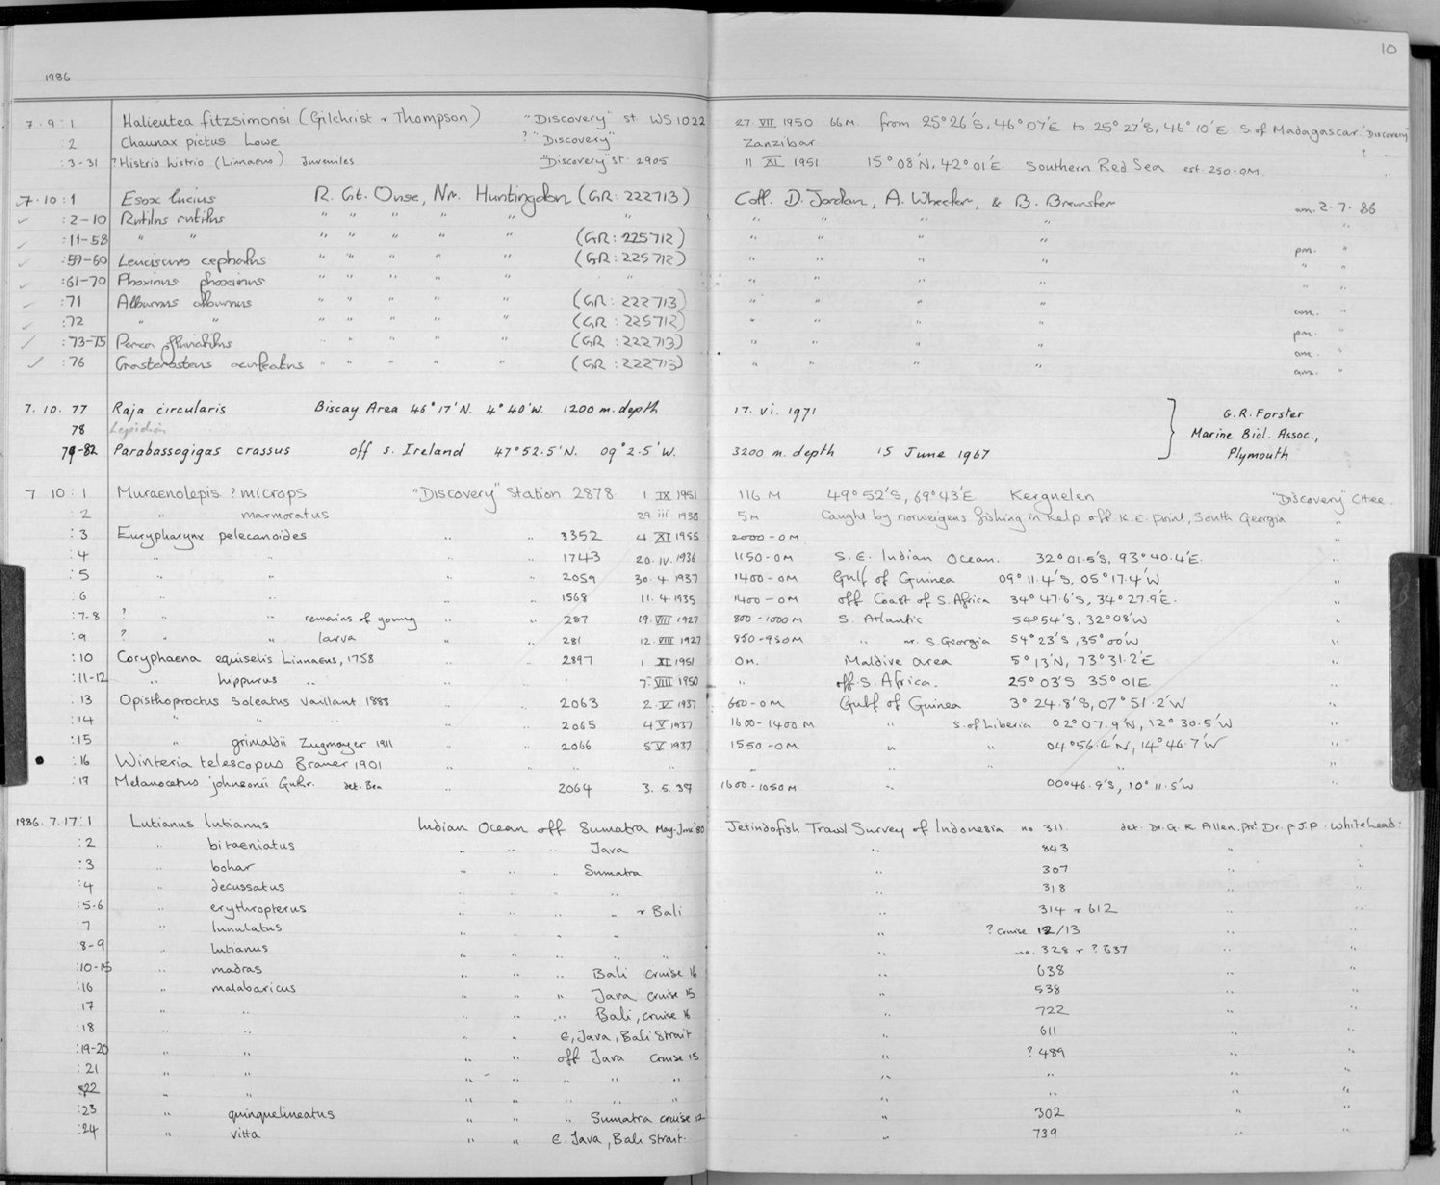 10
1986
7.9:1 Halieutea fitzsimonsi (Gilchrist & Thompson) "Discovery" st. WS1022 27 VII 1950 66M. from 25°26'S, 46°07'E to 25°27'S, 46°10'E S. of Madagascar. "Discovery"
:2 Chaunax pictus Lowe ? "Discovery" Zanzibar
:3-31 ? Histrio histrio (Linnaeus) Juveniles "Discovery" st. 2905 11 XI 1951 15°08'N, 42°01'E Southern Red Sea est. 250-0M.
7.10:1 Esox lucius R. Gt. Ouse, Nr. Huntingdon (GR: 222713) Coll. D. Jordan, A. Wheeler, & B. Brewster am. 2.7.86
:2-10 Rutilus rutilus " " " " " " " " " " "
:11-58 " " " " " " " (GR: 225712) " " " " pm. "
:59-60 Leuciscus cephalus " " " " " (GR: 225712) " " " " " "
:61-70 Phoxinus phoxinus " " " " " " " " " " " "
:71 Alburnus alburnus " " " " " (GR: 222713) " " " " am. "
:72 " " " " " " " (GR: 225712) " " " " pm. "
:73-75 Perca fluviatilus " " " " " (GR: 222713) " " " " am. "
:76 Gasterosteus aculeatus " " " " " (GR: 222713) " " " " am. "
7.10.77 Raja circularis Biscay Area 46°17'N. 4°40'W. 1200 m. depth 17. vi. 1971 G.R. Forster
78 Lepidion Marine Biol. Assoc.,
79-82 Parabassogigas crassus off s. Ireland 47°52.5'N. 09°2.5'W. 3200 m. depth 15 June 1967 Plymouth
7 10:1 Muraenolepis ? microps "Discovery" Station 2878 1 IX 1951 116 M 49°52'S, 69°43'E Kerguelen "Discovery" Cttee.
:2 " marmoratus 29 iii 1938 5M Caught by norweigens fishing in kelp off K.E. point, South Georgia "
:3 Eurypharynx pelecanoides " " 3352 4 XI 1955 2000-0M "
:4 " " " " 1743 20. IV. 1936 1150-0M S.E. Indian Ocean. 32°01.5'S, 93°40.4'E. "
:5 " " " " 2059 30. 4. 1937 1400-0M Gulf of Guinea 09°11.4'S, 05°17.4'W "
:6 " " " " 1568 11. 4. 1935 1400-0M off Coast of S. Africa 34°47.6'S, 34°27.9'E. "
:7-8 ? " remains of young " " 287 19. VIII 1927 800-1000M S. Atlantic 54°54'S, 32°08'W "
:9 ? " larva " " 281 12. VIII 1927 850-950M " nr. S. Georgia 54°23'S, 35°00'W "
:10 Coryphaena equiselis Linnaeus, 1758 " " 2897 1 XI 1951 0M. Maldive area 5°13'N, 73°31.2'E "
:11-12 " hippurus " " " 7 VIII 1950 " off S. Africa. 25°03'S 35°01E "
:13 Opisthoproctus soleatus Vaillant 1888 " " 2063 2. V 1937 600-0M Gulf of Guinea 3°24.8'S, 07°51.2'W "
:14 " " " " 2065 4 V 1937 1600-1400M " S. of Liberia 02°07.9'N, 12°30.5'W "
:15 " grimaldii Zugmayer 1911 " " 2066 5 V 1937 1550-0M " " 04°56.4'N, 14°46.7'W "
:16 Winteria telescopus Brauer 1901 " " " " " " "
:17 Melanocetus johnsonii Gnthr. det. Ben " " 2064 3. 5. 37 1600-1050M " 00°46.9'S, 10°11.5'W "
1986. 7. 17:1 Lutianus lutianus Indian Ocean off Sumatra May-June 80 Jetindofish Trawl Survey of Indonesia no 311. det. Dr. G. R. Allen, pri Dr. P.J.P. Whitehead.
:2 " bitaeniatus " " " Java " 843 " "
:3 " bohar " " " Sumatra " 307 " "
:4 " decussatus " " " " " 318 " "
:5-6 " erythropterus " " " " & Bali " 314 & 612 " "
7 " lunulatus " " " " " ? Cruise 12/13 " "
8-9 " lutianus " " " " " no. 328 & ? 637 " "
:10-15 " madras " " " Bali cruise 16 " 638 " "
:16 " malabaricus " " " Java cruise 15 " 538 " "
:17 " " " " " Bali, cruise 16 " 722 " "
:18 " " " " E. Java, Bali Strait " 611 " "
:19-20 " " " " off Java cruise 15 " ? 489 " "
:21 " " " " " " " " " " "
:22 " " " " " " " " " " "
:23 " quinquelineatus " " " Sumatra cruise 12 " 302 " "
:24 " vitta " " E. Java, Bali Strait. " 739 " "